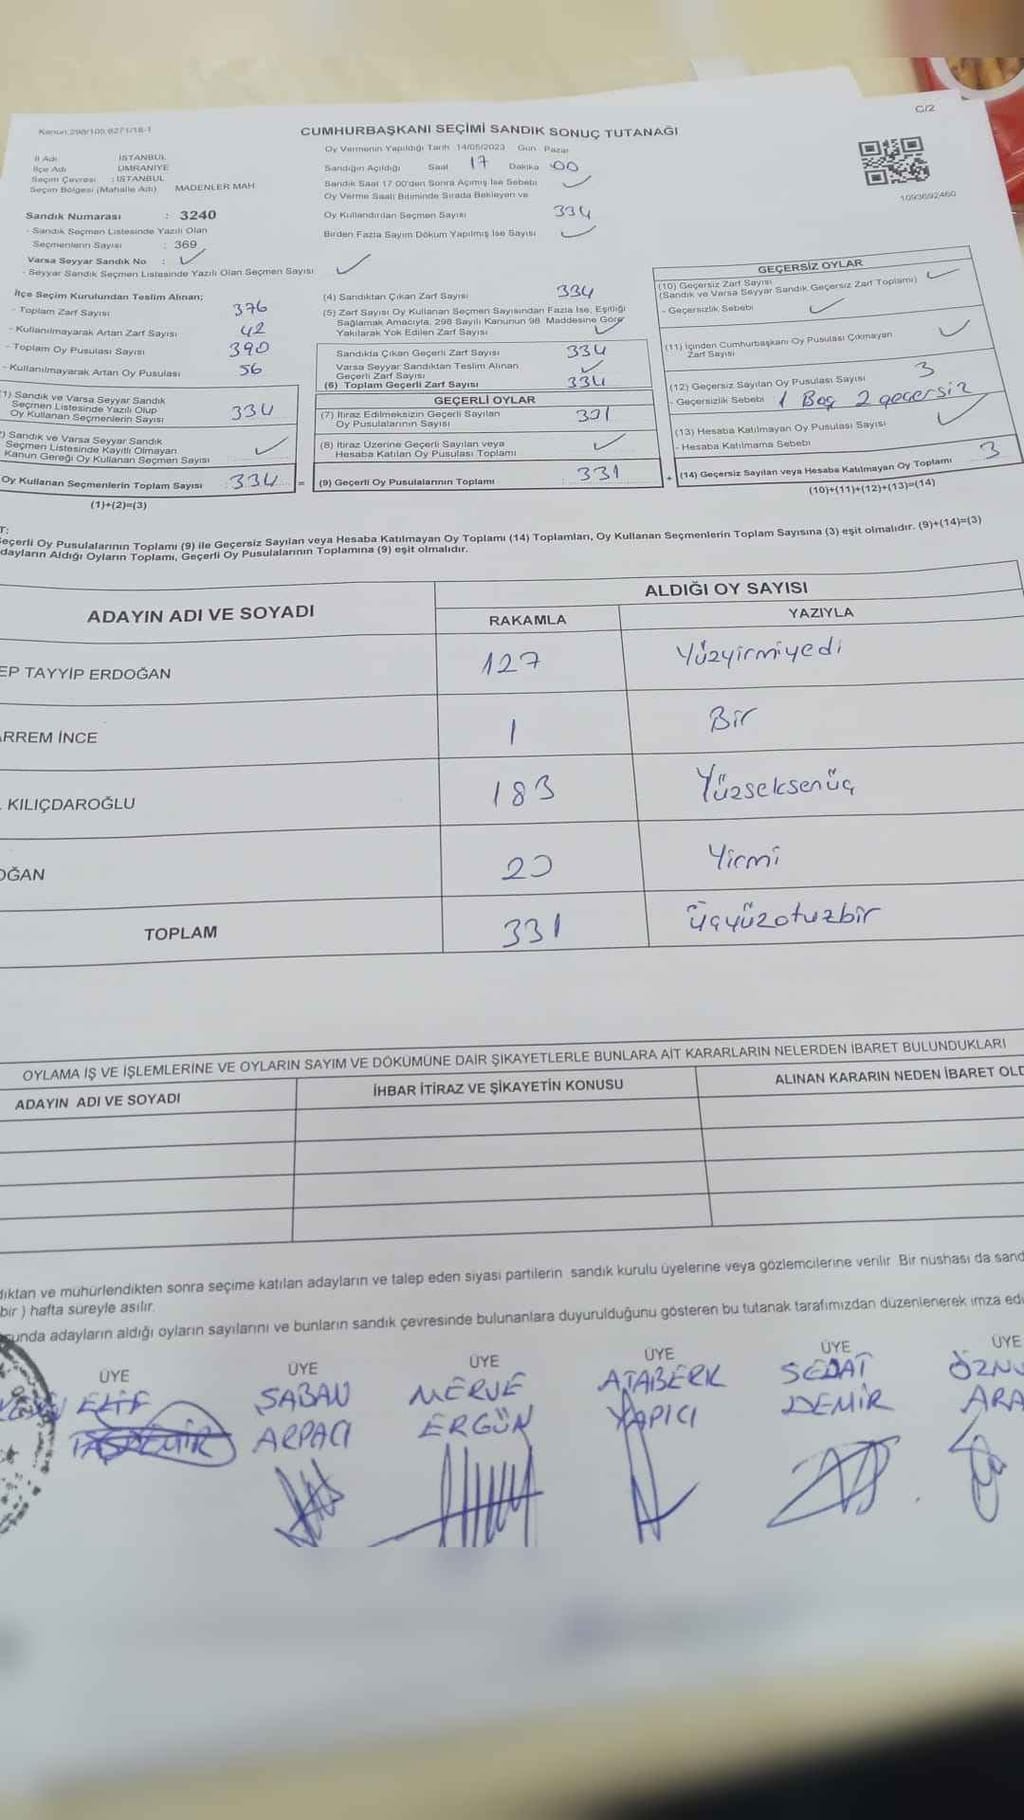 C/2
Kanun:298/105,6271/18-1
CUMHURBAŞKANI SEÇİMİ SANDIK SONUÇ TUTANAĞI
İl Adı İSTANBUL
İlçe Adı ÜMRANİYE
Seçim Çevresi : İSTANBUL
Seçim Bölgesi (Mahalle Adı) MADENLER MAH
Oy Vermenin Yapıldığı Tarih 14/05/2023 Gün Pazar
Sandığın Açıldığı Saat 17 Dakika 00
Sandık Saat 17.00'den Sonra Açılmış İse Sebebi
Oy Verme Saati Bitiminde Sırada Bekleyen ve
Oy Kullandırılan Seçmen Sayısı 334
Birden Fazla Sayım Döküm Yapılmış İse Sayısı
1093692460
Sandık Numarası : 3240
- Sandık Seçmen Listesinde Yazılı Olan
Seçmenlerin Sayısı : 369
Varsa Seyyar Sandık No :
- Seyyar Sandık Seçmen Listesinde Yazılı Olan Seçmen Sayısı
İlçe Seçim Kurulundan Teslim Alınan;
- Toplam Zarf Sayısı 376
- Kullanılmayarak Artan Zarf Sayısı 42
- Toplam Oy Pusulası Sayısı 390
- Kullanılmayarak Artan Oy Pusulası 56
1) Sandık ve Varsa Seyyar Sandık
Seçmen Listesinde Yazılı Olup
Oy Kullanan Seçmenlerin Sayısı 334
) Sandık ve Varsa Seyyar Sandık
Seçmen Listesinde Kayıtlı Olmayan
Kanun Gereği Oy Kullanan Seçmen Sayısı
Oy Kullanan Seçmenlerin Toplam Sayısı 334 =
(1)+(2)=(3)
(4) Sandıktan Çıkan Zarf Sayısı 334
(5) Zarf Sayısı Oy Kullanan Seçmen Sayısından Fazla İse, Eşitliği
Sağlamak Amacıyla, 298 Sayılı Kanunun 98. Maddesine Göre
Yakılarak Yok Edilen Zarf Sayısı
Sandıkta Çıkan Geçerli Zarf Sayısı 334
Varsa Seyyar Sandıktan Teslim Alınan
Geçerli Zarf Sayısı
(6) Toplam Geçerli Zarf Sayısı 334
GEÇERLİ OYLAR
(7) İtiraz Edilmeksizin Geçerli Sayılan
Oy Pusulalarının Sayısı 331
(8) İtiraz Üzerine Geçerli Sayılan veya
Hesaba Katılan Oy Pusulası Toplamı
(9) Geçerli Oy Pusulalarının Toplamı 331 +
GEÇERSİZ OYLAR
(10) Geçersiz Zarf Sayısı
(Sandık ve Varsa Seyyar Sandık Geçersiz Zarf Toplamı)
- Geçersizlik Sebebi
(11) İçinden Cumhurbaşkanı Oy Pusulası Çıkmayan
Zarf Sayısı
(12) Geçersiz Sayılan Oy Pusulası Sayısı 3
- Geçersizlik Sebebi 1 Boş 2 geçersiz
(13) Hesaba Katılmayan Oy Pusulası Sayısı
- Hesaba Katılmama Sebebi
(14) Geçersiz Sayılan veya Hesaba Katılmayan Oy Toplamı 3
(10)+(11)+(12)+(13)=(14)
T:
eçerli Oy Pusulalarının Toplamı (9) ile Geçersiz Sayılan veya Hesaba Katılmayan Oy Toplamı (14) Toplamları, Oy Kullanan Seçmenlerin Toplam Sayısına (3) eşit olmalıdır. (9)+(14)=(3)
dayların Aldığı Oyların Toplamı, Geçerli Oy Pusulalarının Toplamına (9) eşit olmalıdır.
ADAYIN ADI VE SOYADI ALDIĞI OY SAYISI
RAKAMLA YAZIYLA
EP TAYYİP ERDOĞAN 127 Yüzyirmiyedi
ARREM İNCE 1 Bir
KILIÇDAROĞLU 183 Yüzseksenüç
OĞAN 20 Yirmi
TOPLAM 331 üçyüzotuzbir
OYLAMA İŞ VE İŞLEMLERİNE VE OYLARIN SAYIM VE DÖKÜMÜNE DAİR ŞİKAYETLERLE BUNLARA AİT KARARLARIN NELERDEN İBARET BULUNDUKLARI
ADAYIN ADI VE SOYADI İHBAR İTİRAZ VE ŞİKAYETİN KONUSU ALINAN KARARIN NEDEN İBARET OLD
dıktan ve mühürlendikten sonra seçime katılan adayların ve talep eden siyasi partilerin sandık kurulu üyelerine veya gözlemcilerine verilir. Bir nüshası da sand
bir ) hafta süreyle asılır.
unda adayların aldığı oyların sayılarını ve bunların sandık çevresinde bulunanlara duyurulduğunu gösteren bu tutanak tarafımızdan düzenlenerek imza edi
ÜYE ÜYE ÜYE ÜYE ÜYE ÜYE
ELİF ŞABAN MERVE ATABERK SEDAT ÖZNU
TAŞDEMİR ARPACI ERGÜN YAPICI DEMİR ARA